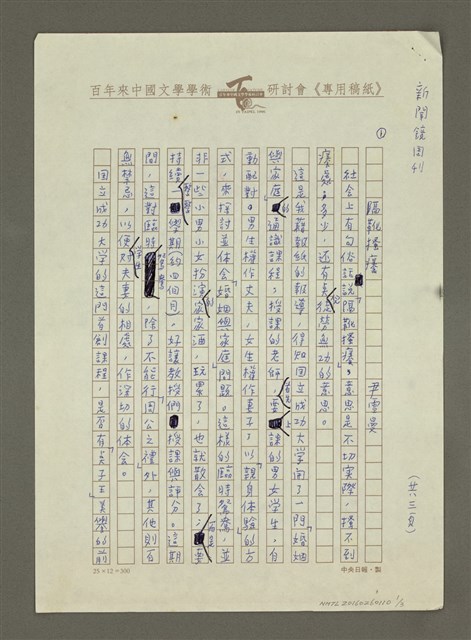 新聞鏡周刊
百年來中國文學學術研討會《專用稿紙》
①
(共三頁)
隔靴搔癢 尹雪曼
社會上有句俗話說「隔靴搔癢」,意思是不切實際,搔不到
癢處。多少,還有點徒勞無功的意思。
這是我藉報紙的報導,得知國立成功大學開了一門「婚姻
與家庭」的通識課程,授課的老師,要上課的男女學生,自
動配對。男生權作丈夫,女生權作妻子,以「親身體驗」的方
式,來探討並体會婚姻與家庭問題。這樣的臨時鴛鴦,並
非一些小男小女扮演的「家家酒」,玩累了,也就散會了;而是要
持續一整整學期(約四個月),好讓教授們授課與評分。這期
間,這對臨時鴛鴦,除了不能行「周公之禮」外,其他則百
無禁忌,以便學生對夫妻的相處,作深切的体會。
國立成功大學的這門首創課程,是否有「美盡的前
25×12=300
中央日報・製
NMTL20160260110 1/3